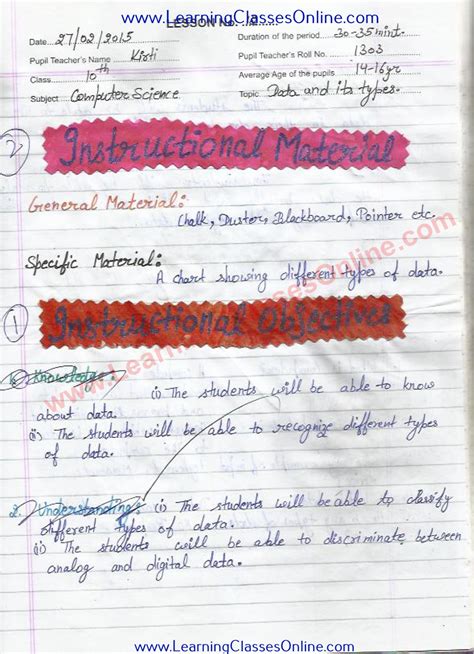 www.LearningClassesOnline.com
LESSON No.
Date 27/02/2015 Duration of the period 30-35 mint.
Pupil Teacher's Name Kirti Pupil Teacher's Roll No. 1303
Class 10th Average Age of the pupils 14-16yr
Subject Computer Science Topic Data and its types.
2 Instructional Material
General Material:
Chalk, Duster, Blackboard, Pointer etc.
Specific Material:
A chart showing different types of data.
1 Instructional Objectives
1. Knowledge (i) The students will be able to know
about data.
(ii) The students will be able to recognize different types
of data.
2. Understanding (i) The students will be able to classify
different types of data.
(ii) The students will be able to discriminate between
analog and digital data.
www.LearningClassesOnline.com
www.LearningClassesOnline.com